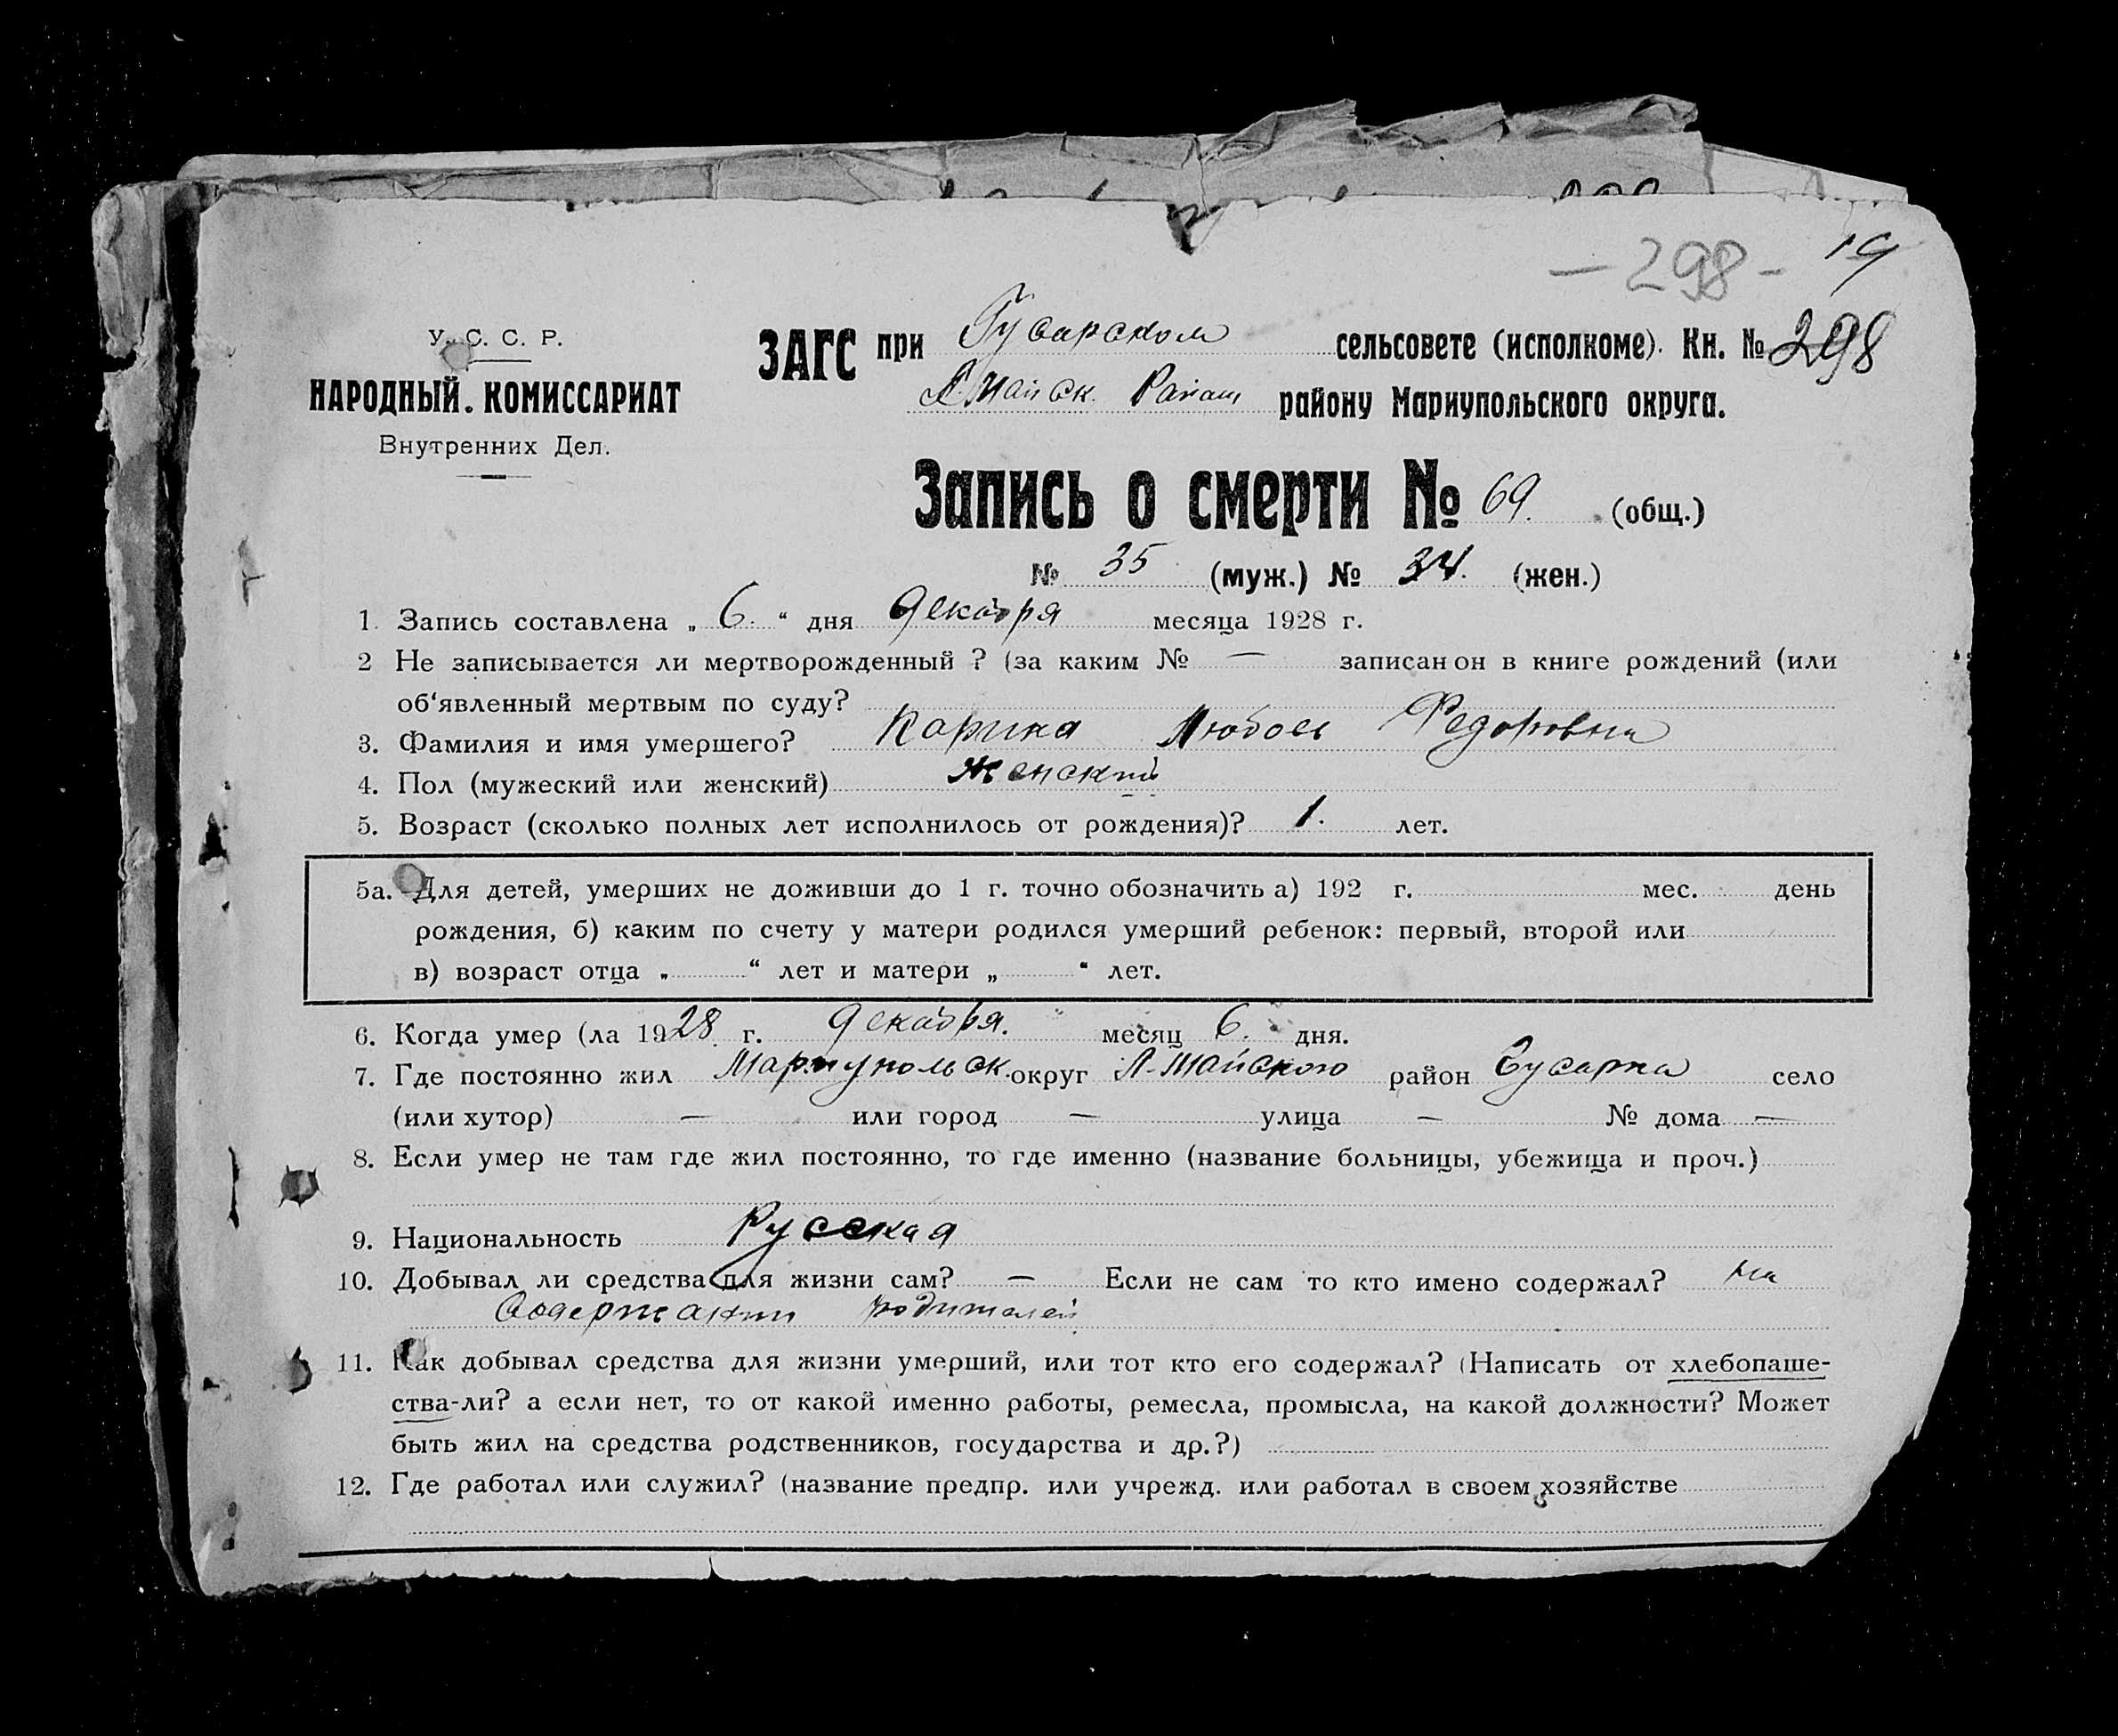 — 298 — 19
У. С. С. Р.
НАРОДНЫЙ. КОМИССАРИАТ
Внутренних Дел.
ЗАГС при Гусарском сельсовете (исполкоме). Кн. № 298
Л. Майск. Раион району Мариупольского округа.
Запись о смерти № 69. (общ.)
№ 35 (муж.) № 34. (жен.)
1. Запись составлена „ 6. “ дня декабря месяца 1928 г.
2 Не записывается ли мертворожденный ? (за каким № — записан он в книге рождений (или
об‘явленный мертвым по суду?
3. Фамилия и имя умершего? Карина Любовь Федоровна
4. Пол (мужеский или женский) женский
5. Возраст (сколько полных лет исполнилось от рождения)? 1. лет.
5а. Для детей, умерших не доживши до 1 г. точно обозначить а) 192 г. мес. день
рождения, б) каким по счету у матери родился умерший ребенок: первый, второй или
в) возраст отца „ “ лет и матери „ “ лет.
6. Когда умер (ла 1928 г. декабря. месяц 6. дня.
7. Где постоянно жил Мариупольск. округ Л-Майского район Гусарка село
(или хутор) — или город — улица — № дома —
8. Если умер не там где жил постоянно, то где именно (название больницы, убежища и проч.)
9. Национальность Русская
10. Добывал ли средства для жизни сам? — Если не сам то кто имено содержал? на
Содержании родителей
11. Как добывал средства для жизни умерший, или тот кто его содержал? (Написать от хлебопаше-
ства-ли? а если нет, то от какой именно работы, ремесла, промысла, на какой должности? Может
быть жил на средства родственников, государства и др.?)
12. Где работал или служил? (название предпр. или учрежд. или работал в своем хозяйстве